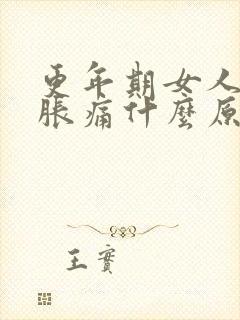 更年期女人
脹痛什麼原
王實